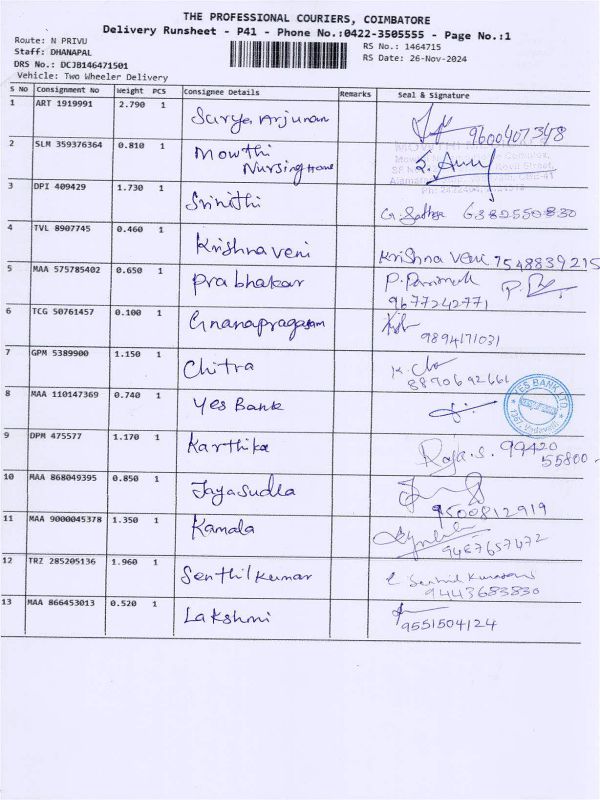 THE PROFESSIONAL COURIERS, COIMBATORE
Delivery Runsheet - P41 - Phone No.:0422-3505555 - Page No.:1
Route: N PRIVU
RS No.: 1464715
Staff: DHANAPAL
RS Date: 26-Nov-2024
DRS No.: DCJB146471501
Vehicle: Two Wheeler Delivery
S No Consignment No Weight PCS Consignee Details Remarks Seal & Signature
1 ART 1919991 2.790 1 Surya Arjunan 9600407348
2 SLM 359376364 0.810 1 Mowthi
Nursing Home
3 DPI 409429 1.730 1 Srinithi G. Sathya 6382550830
4 TVL 8907745 0.460 1 Krishnaveni Krishna veni 7548839215
5 MAA 575785402 0.650 1 Prabhakar
9677242771
6 TCG 50761457 0.100 1 Gnanapragasam
9894171031
7 GPM 5389900 1.150 1 Chitra
8870692661
8 MAA 110147369 0.740 1 Yes Bank YES BANK LTD.
9 DPM 475577 1.170 1 Karthika Raja.S. 99420
55800
10 MAA 868049395 0.850 1 Jayasudha
9500812919
11 MAA 9000045378 1.350 1 Kamala
9487657472
12 TRZ 285205136 1.960 1 Senthilkumar
9443683830
13 MAA 866453013 0.520 1 Lakshmi
9551504124